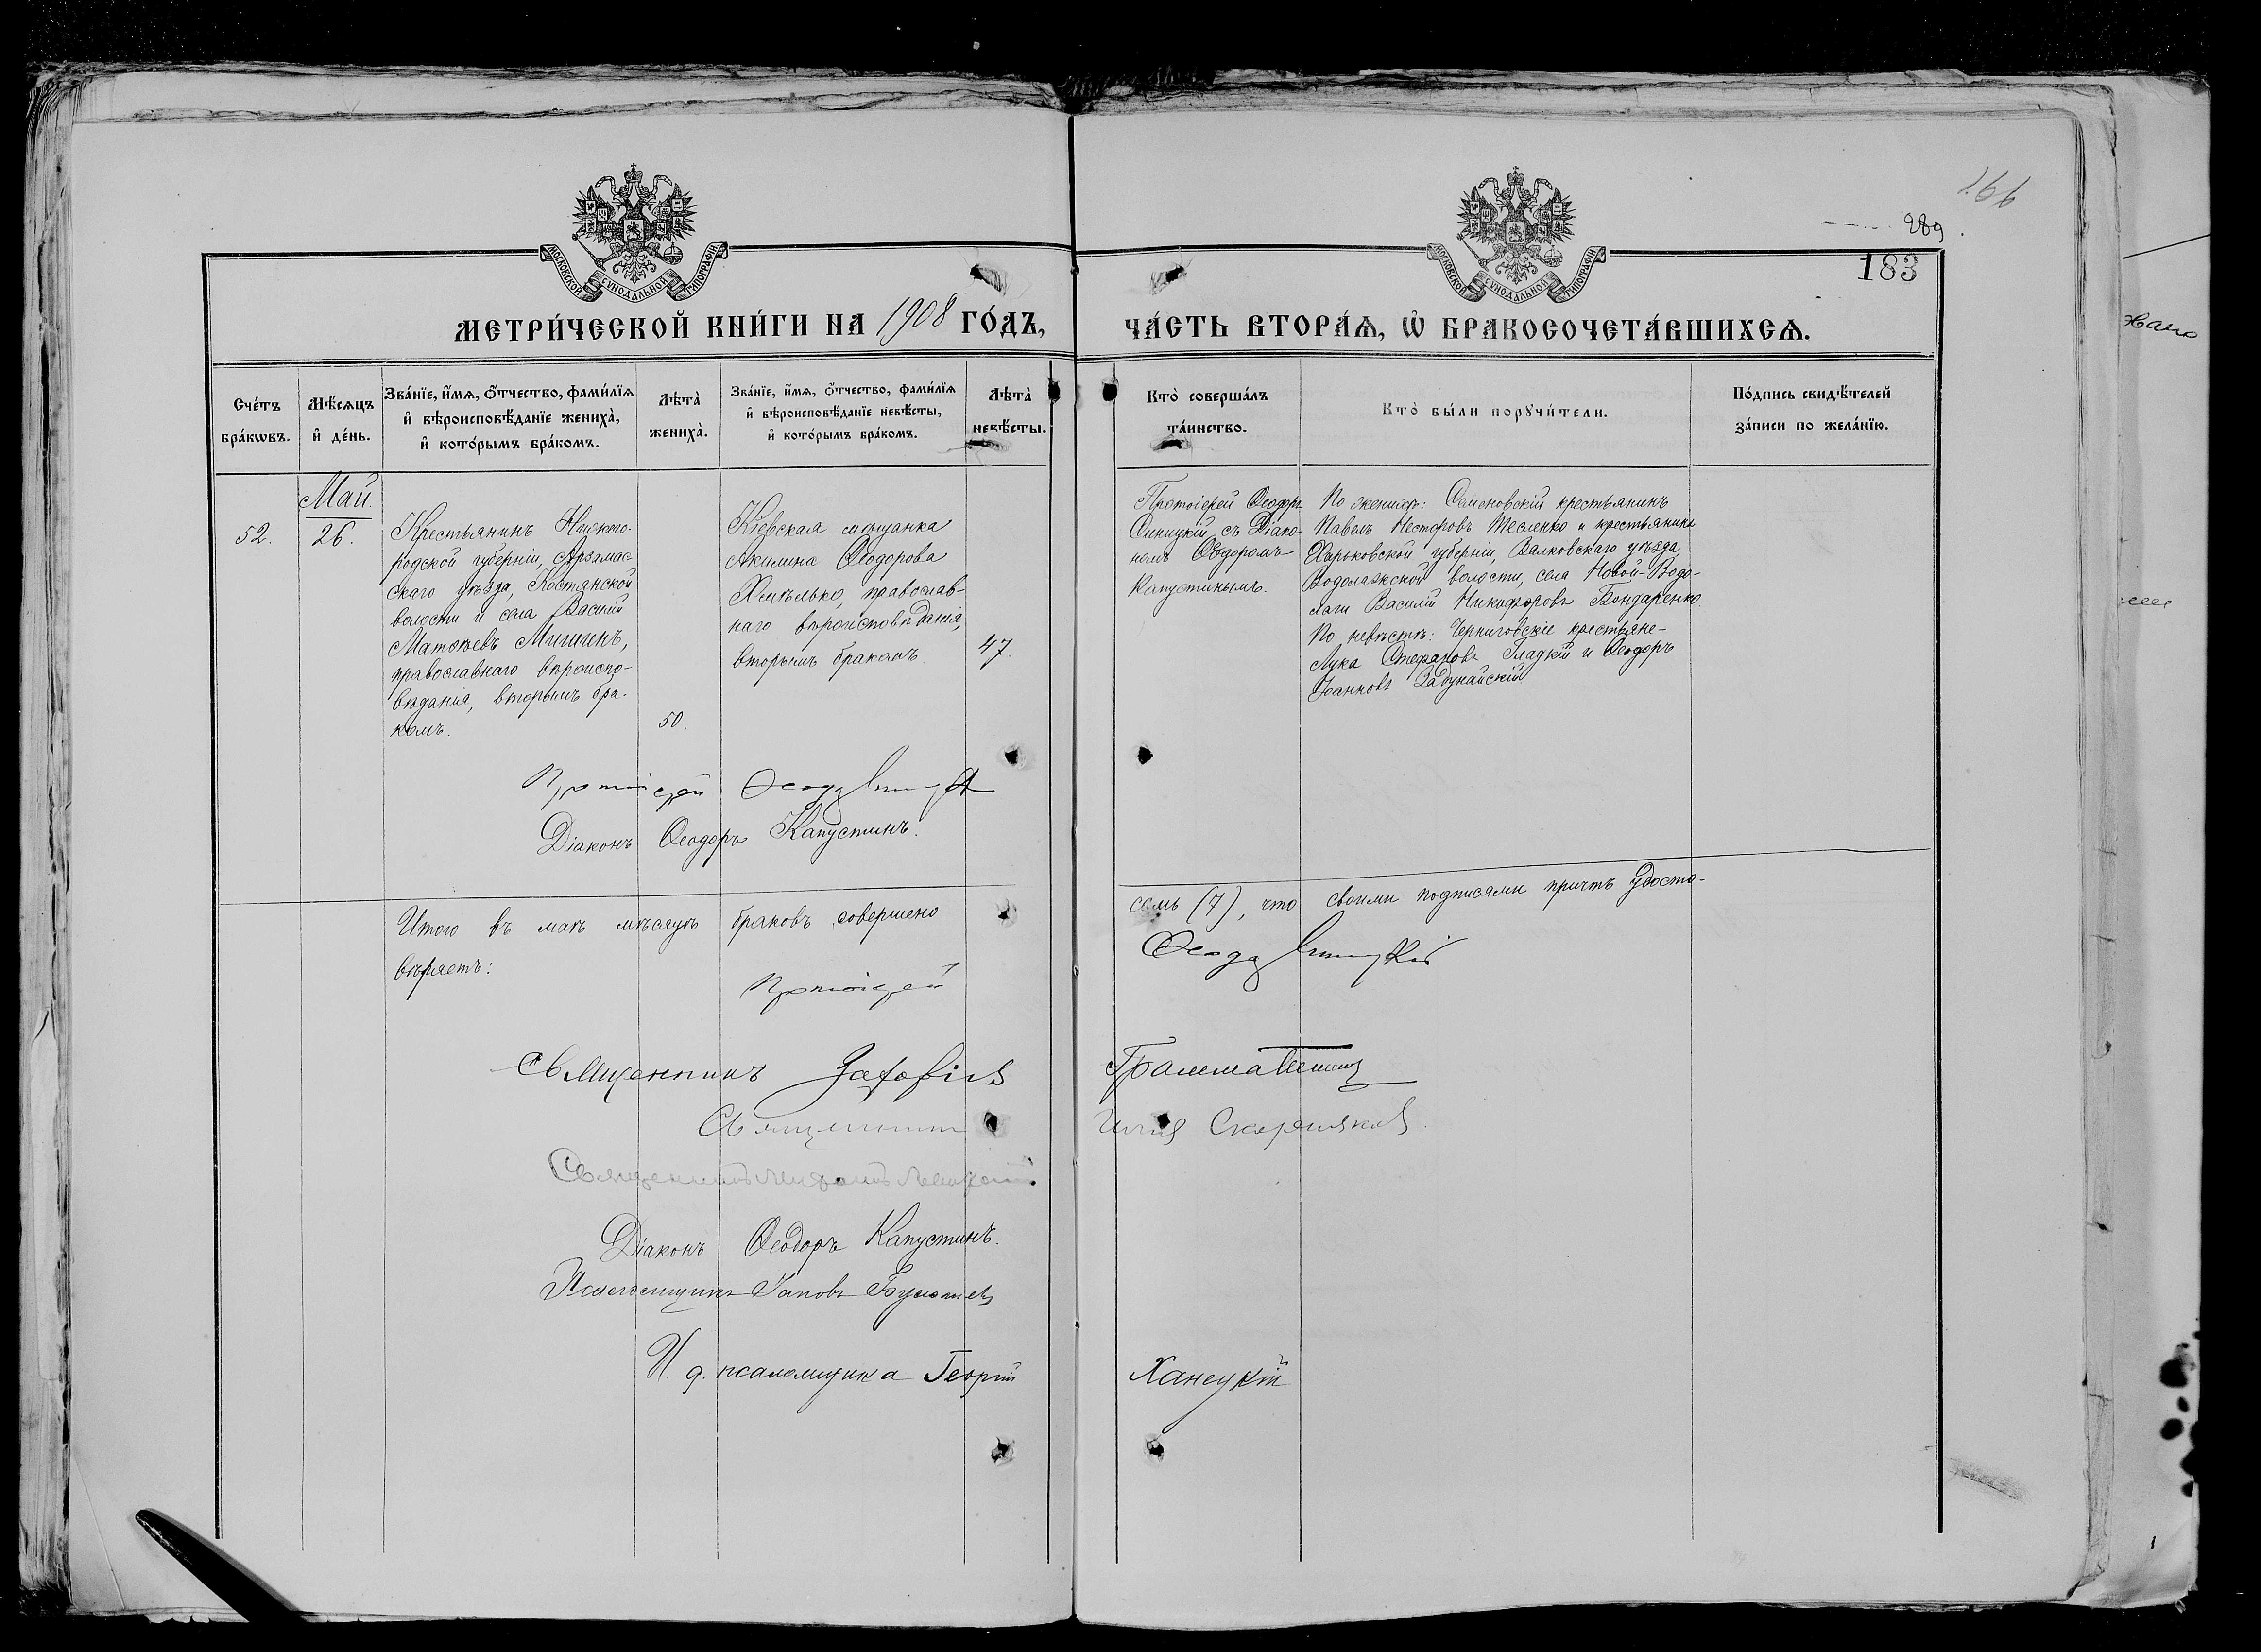 166
289
183
МОСКОВСКОЙ СѴНОДАЛЬНОЙ ТИПОГРАФІИ
МОСКОВСКОЙ СѴНОДАЛЬНОЙ ТИПОГРАФІИ
МЕТРИ́ЧЕСКОЙ КНИ́ГИ НА 1908 ГО́ДЪ,
ЧА́СТЬ ВТОРА́Ѧ, Ѽ БРАКОСОЧЕТА́ВШИХСѦ.
Сче́тъ
бра́кѡвъ.
Мѣ́сѧцъ
и҆ де́нь.
Зва́нїе, и҆́мѧ, ѻ҆́тчество, фами́лїѧ
и҆ вѣроисповѣ́данїе жениха̀,
и҆ кото́рымъ бра́комъ.
Лѣта̀
жениха̀.
Зва́нїе, и҆́мѧ, ѻ҆́тчество, фами́лїѧ
и҆ вѣроисповѣ́данїе невѣ́сты,
и҆ кото́рымъ бра́комъ.
Лѣта̀
невѣ́сты.
Кто̀ соверша́лъ
та́инство.
Кто̀ бы́ли порꙋчи́тели.
По́дпись свидѣ́телей
за́писи по жела́нїю.
Май.
52.
26.
Крестьянинъ Нижего-
родской губерніи, Арзамас-
скаго уѣзда, Костянской
волости и села Василій
Матѳеевъ Мишинъ,
православнаго вѣроиспо-
вѣданія, вторымъ бра-
комъ.
50.
Кіевская мѣщанка
Акилина Ѳеодорова
Хмѣлько, православ-
наго вѣроисповѣданія,
вторымъ бракомъ.
47.
Протоіерей Ѳеодоръ
Синицкій съ Діако-
номъ Ѳеодоромъ
Капустинымъ.
По женихѣ: Семеновскій крестьянинъ
Павелъ Несторовъ Тесленко и крестьянинъ
Харьковской губерніи, Валковскаго уѣзда,
Водолажской волости, села Новой-Водо-
лаги Василій Никифоровъ Бондаренко.
По невѣстѣ: Черниговскіе крестьяне-
Лука Стефановъ Гладкій и Ѳеодоръ
Іоанновъ Задунайскій
Протоіерей Ѳеодоръ Синицкій
Діаконъ Ѳеодоръ Капустинъ.
Итого въ маѣ мѣсяцѣ браковъ совершено
семь (7), что своими подписями причтъ удосто-
вѣряетъ:
Протоіерей Ѳеодоръ Синицкій
Священникъ Захарія
Священникъ
Священникъ
Діаконъ Ѳеодоръ Капустинъ.
Псаломщикъ Іаковъ
И. д. псаломщика Георгій Ханецкій